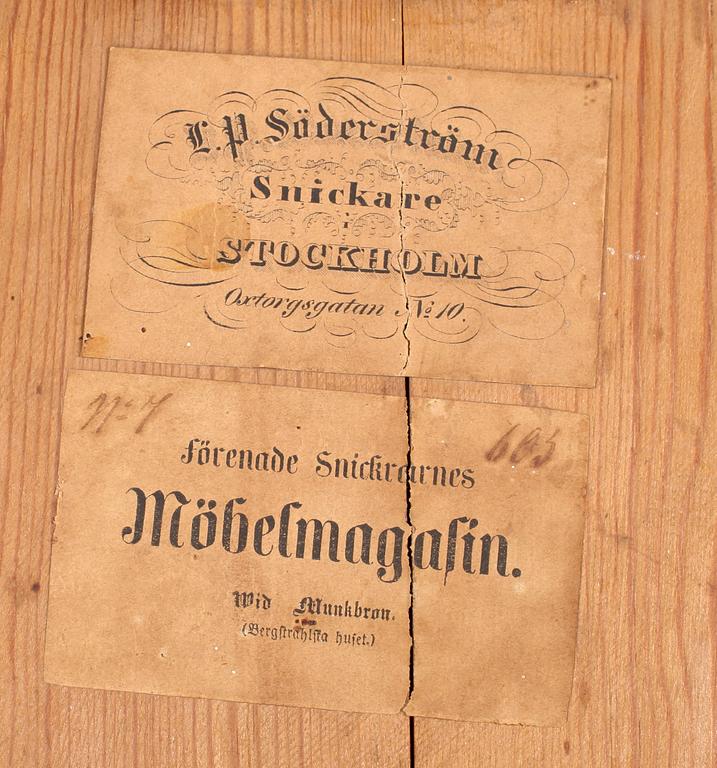 L. P. Söderström
Snickare
i
STOCKHOLM
Oxtorgsgatan No 10.
No 7
605
Förenade Snickrarnes
Möbelmagasin.
Wid Munkbron.
(Bergstrahlska huset.)